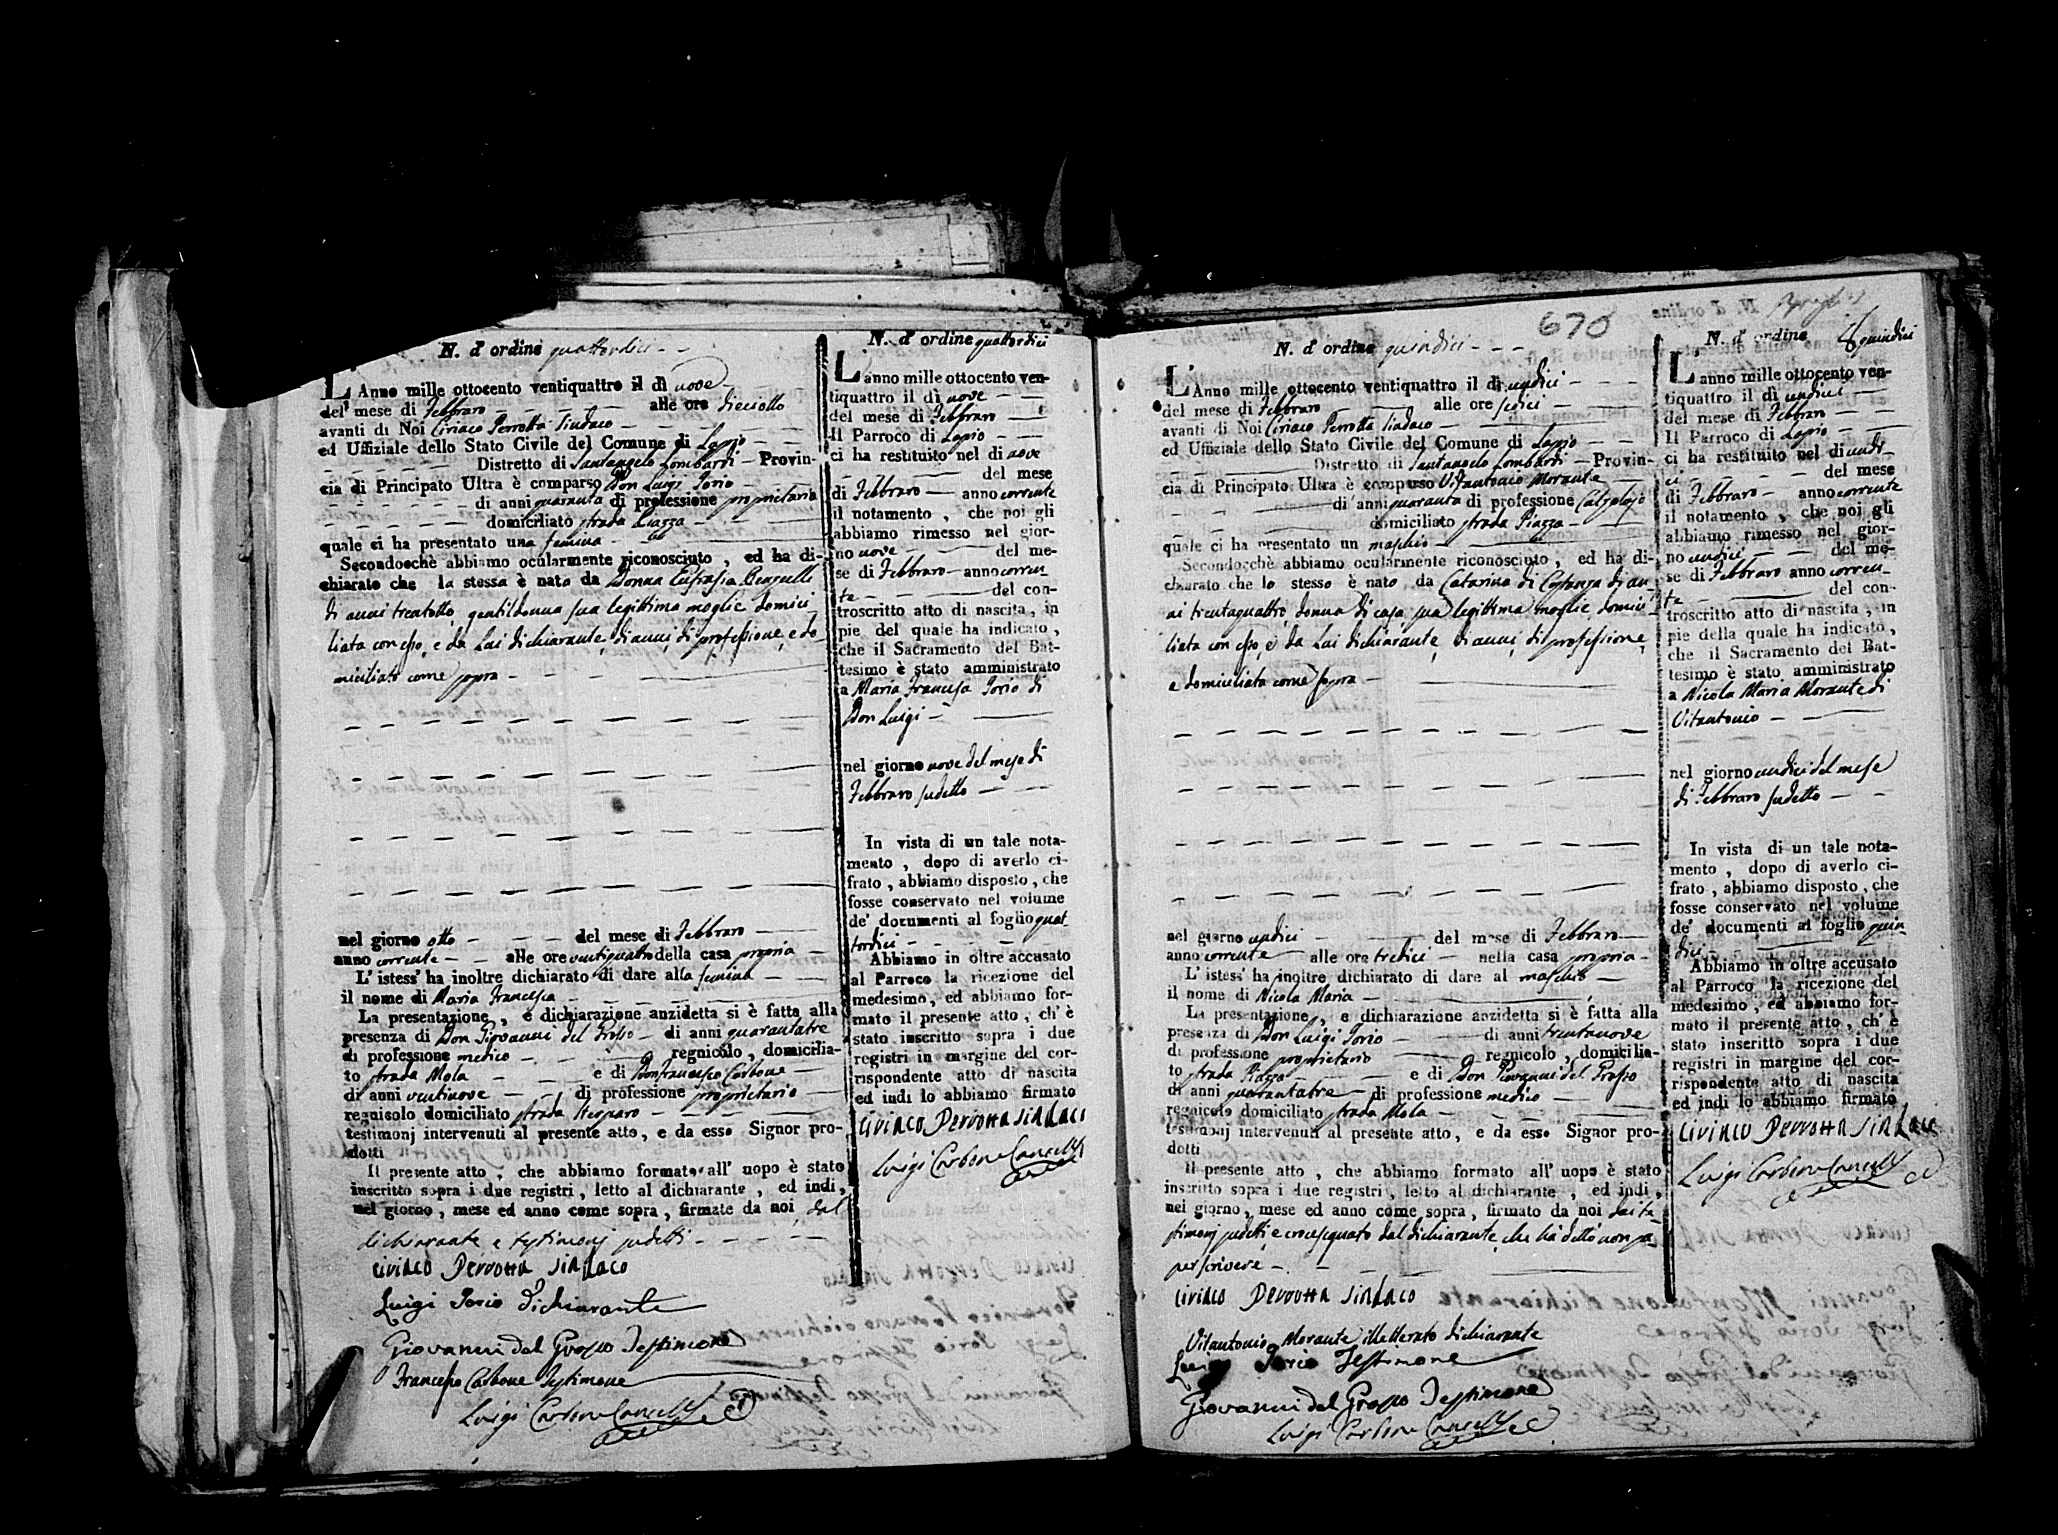 N. d' ordine quattordici
L' Anno mille ottocento ventiquattro il dì nove
del mese di Febbraro alle ore dieciotto
avanti di Noi Ciriaco Perrotta Sindaco
ed Uffiziale dello Stato Civile del Comune di Lapio
Distretto di Santangelo Lombardi Provin-
cia di Principato Ultra è comparso Don Luigi Iorio
di anni quaranta di professione proprietario
domiciliato strada Piazza
quale ci ha presentato una femina
Secondocchè abbiamo ocularmente riconosciuto , ed ha di-
chiarato che la stessa è nata da Donna Eufrasia
di anni trentotto, gentildonna sua legittima moglie domici-
liata con esso, e da Lui dichiarante, di anni, di professione, e do
miciliato come sopra
nel giorno otto del mese di Febbraro
anno corrente alle ore ventiquattro della casa propria
L' istess' ha inoltre dichiarato di dare alla femina
il nome di Maria Francesca
La presentazione , e dichiarazione anzidetta si è fatta alla
presenza di Don Giovanni del Grosso di anni quarantatre
di professione medico regnicolo , domicilia-
to strada Mola e di Don Francesco Carbone
di anni ventinove di professione proprietario
regnicolo domiciliato strada
testimonj intervenuti al presente atto, e da esso Signor pro-
dotti
Il presente atto , che abbiamo formato all' uopo è stato
inscritto sopra i due registri , letto al dichiarante , ed indi ,
nel giorno , mese ed anno come sopra , firmato da noi dal
dichiarante e testimonj sudetti
Ciriaco Perrotta Sindaco
Luigi Iorio Dichiarante
Giovanni del Grosso Testimone
Francesco Carbone Testimone
Luigi Carbone Cancell
N. d' ordine quattordici
L' anno mille ottocento ven-
tiquattro il dì nove
del mese di Febbraro
Il Parroco di Lapio
ci ha restituito nel dì nove
del mese
di Febbraro anno corrente
il notamento , che noi gli
abbiamo rimesso nel gior-
no nove del me-
se di Febbraro anno corren-
te del con-
troscritto atto di nascita , in
pie del quale ha indicato ,
che il Sacramento del Bat-
tesimo è stato amministrato
a Maria Francesca Iorio di
Don Luigi
nel giorno nove del mese di
Febbraro sudetto
In vista di un tale nota-
mento , dopo di averlo ci-
frato , abbiamo disposto , che
fosse conservato nel volume
de' documenti al foglio quat
tordici
Abbiamo in oltre accusato
al Parroco la ricezione del
medesimo , ed abbiamo for-
mato il presente atto , ch' è
stato inscritto sopra i due
registri in margine del cor-
rispondente atto di nascita
ed indi lo abbiamo firmato
Ciriaco Perrotta Sindaco
Luigi Carbone Cancell
670
N. d' ordine quindici
L' Anno mille ottocento ventiquattro il dì undici
del mese di Febbraro alle ore sedici
avanti di Noi Ciriaco Perrotta Sindaco
ed Uffiziale dello Stato Civile del Comune di Lapio
Distretto di Santangelo Lombardi Provin-
cia di Principato Ultra è comparso Vitantonio Morante
di anni quaranta di professione Calzolajo
domiciliato strada Piazza
quale ci ha presentato un maschio
Secondocchè abbiamo ocularmente riconosciuto , ed ha di-
chiarato che lo stesso è nato da Catarina di Costanza di an-
ni trentaquattro, donna di casa sua legittima moglie, domici-
liata con esso, e da Lui dichiarante, di anni, di professione,
e domiciliata come sopra
nel giorno undici del mese di Febbraro
anno corrente alle ore tredici nella casa propria
L' istess' ha inoltre dichiarato di dare al maschio
il nome di Nicola Maria
La presentazione , e dichiarazione anzidetta si è fatta alla
presenza di Don Luigi Iorio di anni trentanove
di professione proprietario regnicolo , domicilia-
to strada Piazza e di Don Giovanni del Grosso
di anni quarantatre di professione medico
regnicolo domiciliato strada Mola
testimonj intervenuti al presente atto , e da esso Signor pro-
dotti
Il presente atto , che abbiamo formato all' uopo è stato
inscritto sopra i due registri , letto al dichiarante , ed indi ,
nel giorno , mese ed anno come sopra , firmato da noi dai te-
stimonj sudetti, e crocesegnato dal dichiarante, che hà detto non sa-
per scrivere
Ciriaco Perrotta Sindaco
Vitantonio Morante illetterato dichiarante
Luigi Iorio Testimone
Giovanni del Grosso Testimone
Luigi Carbone Cancell
N. d' ordine quindici
L' anno mille ottocento ven-
tiquattro il dì undici
del mese di Febbraro
Il Parroco di Lapio
ci ha restituito nel dì undi-
ci del mese
di Febbraro anno corrente
il notamento , che noi gli
abbiamo rimesso nel gior-
no undici del me-
se di Febbraro anno corren-
te del con-
troscritto atto di nascita , in
pie della quale ha indicato ,
che il Sacramento del Bat-
tesimo è stato amministrato
a Nicola Maria Morante di
Vitantonio
nel giorno undici del mese
di Febbraro sudetto
In vista di un tale nota-
mento , dopo di averlo ci-
frato , abbiamo disposto , che
fosse conservato nel volume
de' documenti al foglio quin
dici
Abbiamo in oltre accusato
al Parroco la ricezione del
medesimo , ed abbiamo for-
mato il presente atto , ch' è
stato inscritto sopra i due
registri in margine del cor-
rispondente atto di nascita
ed indi lo abbiamo firmato
Ciriaco Perrotta Sindaco
Luigi Carbone Cancell